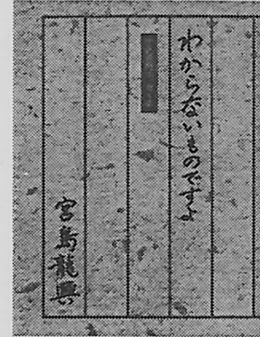 わからないものですよ
宮島龍興